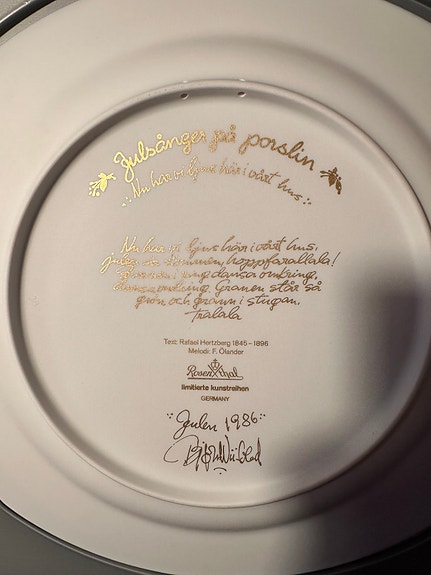 Julsånger på porslin
Nu har vi ljus här i vårt hus
Nu har vi ljus här i vårt hus,
julen är kommen, hoppfarallala!
Barnen i ring dansa omkring,
dansa omkring. Granen står så
grön och grann i stugan,
Tralala
Text: Rafael Hertzberg 1845-1896
Melodi: F. Ölander
Rosenthal
limitierte kunstreihen
GERMANY
Julen 1986
Bjørn Wiinblad